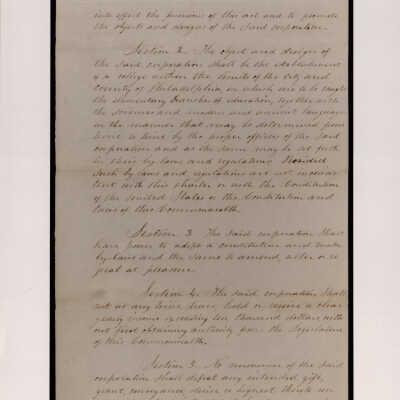 into effect the provisions of this act and to promote
the objects and designs of the said corporation.
Section 2. The object and designs of
the said corporation shall be the establishment
of a college within the limits of the City and
County of Philadelphia, in which are to be taught
the elementary branches of education, together with
the sciences and modern and ancient languages
in the manner that may be determined from
time to time by the proper officers of the said
corporation and as the same may be set forth
in their by laws and regulations Provided
such by laws and regulations are not inconsis
tent with this charter or with the Constitution
of the United States or the Constitution and
laws of this Commonwealth.
Section 3. The said corporation shall
have power to adopt a constitution and make
by-laws and the same to amend, alter or re
peal at pleasure.
Section 4. The said corporation shall
not at any time have, hold or receive a clear
yearly income exceeding ten thousand dollars with
out first obtaining authority from the legislature
of this Commonwealth.
Section 5. No misnomer of the said
corporation shall defeat any intended gift,
grant, conveyance, devise or bequest thereto un